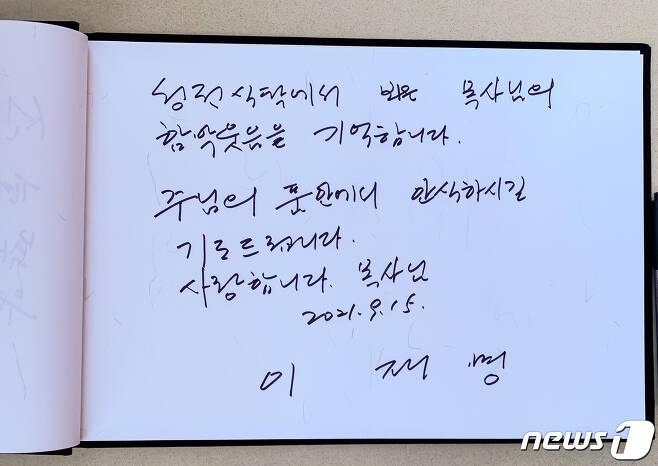 성전식탁에서 뵈온 목사님의
함박웃음을 기억합니다.
주님의 품안에서 안식하시길
기도드립니다.
사랑합니다. 목사님
2021. 9. 15.
이 재 명
news1